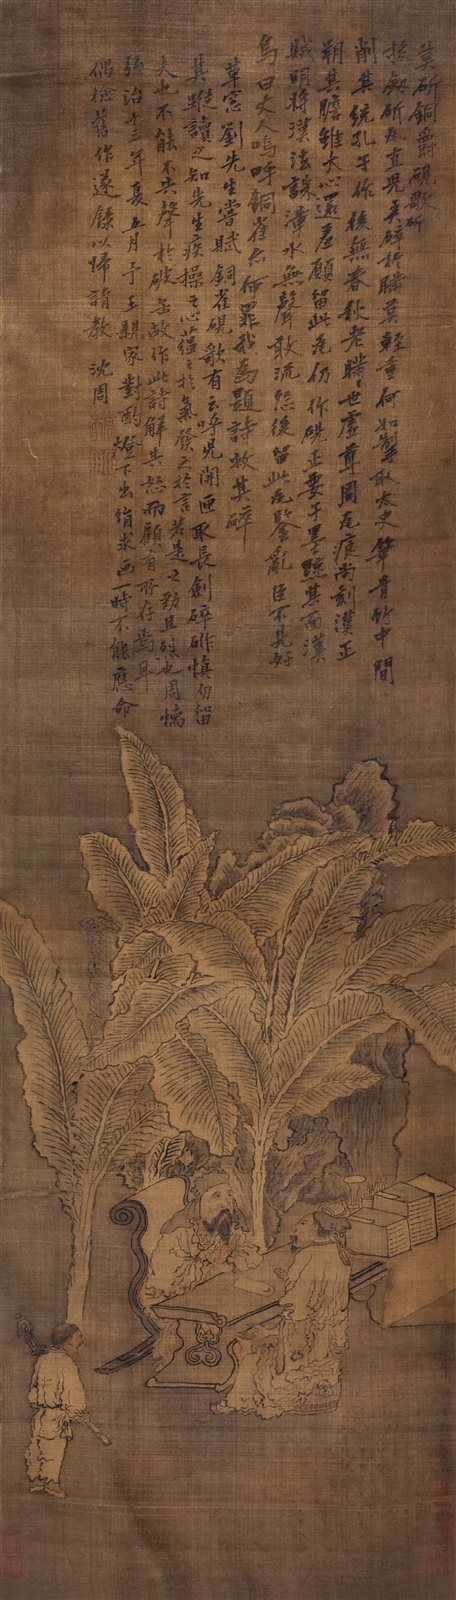 莫斫銅爵硯歌斫
拔劔斫瓦直児戲碎瓦瞞莫輕重何如製取太史筆青竹中間
削其統孔子作後無春秋老瞞世虛尊周瓦痕尚刻漢正
朔其瞻雖大心還羞願留此瓦仍作硯正要于墨黥其面漢
賊明將漢法誅漳水無聲敢流怨後留此瓦鑒亂臣不見好
烏曰丈人嗚呼銅雀瓦何罪我為題詩救其碎
草窓劉先生嘗賦銅雀硯歌有云呼児開匣取長劍碎斫慎勿留
其蹤讀之知先生疾操之心蘊之於氣發之於言若是之勁且烈也周懦
夫也不能不共聲於破缶故作此詩解其怒而願有所存焉耳
弘治十三年夏五月予王親家對酌燈下出絹求画一時不能應命
偶檢舊作遂録以歸請教 沈周